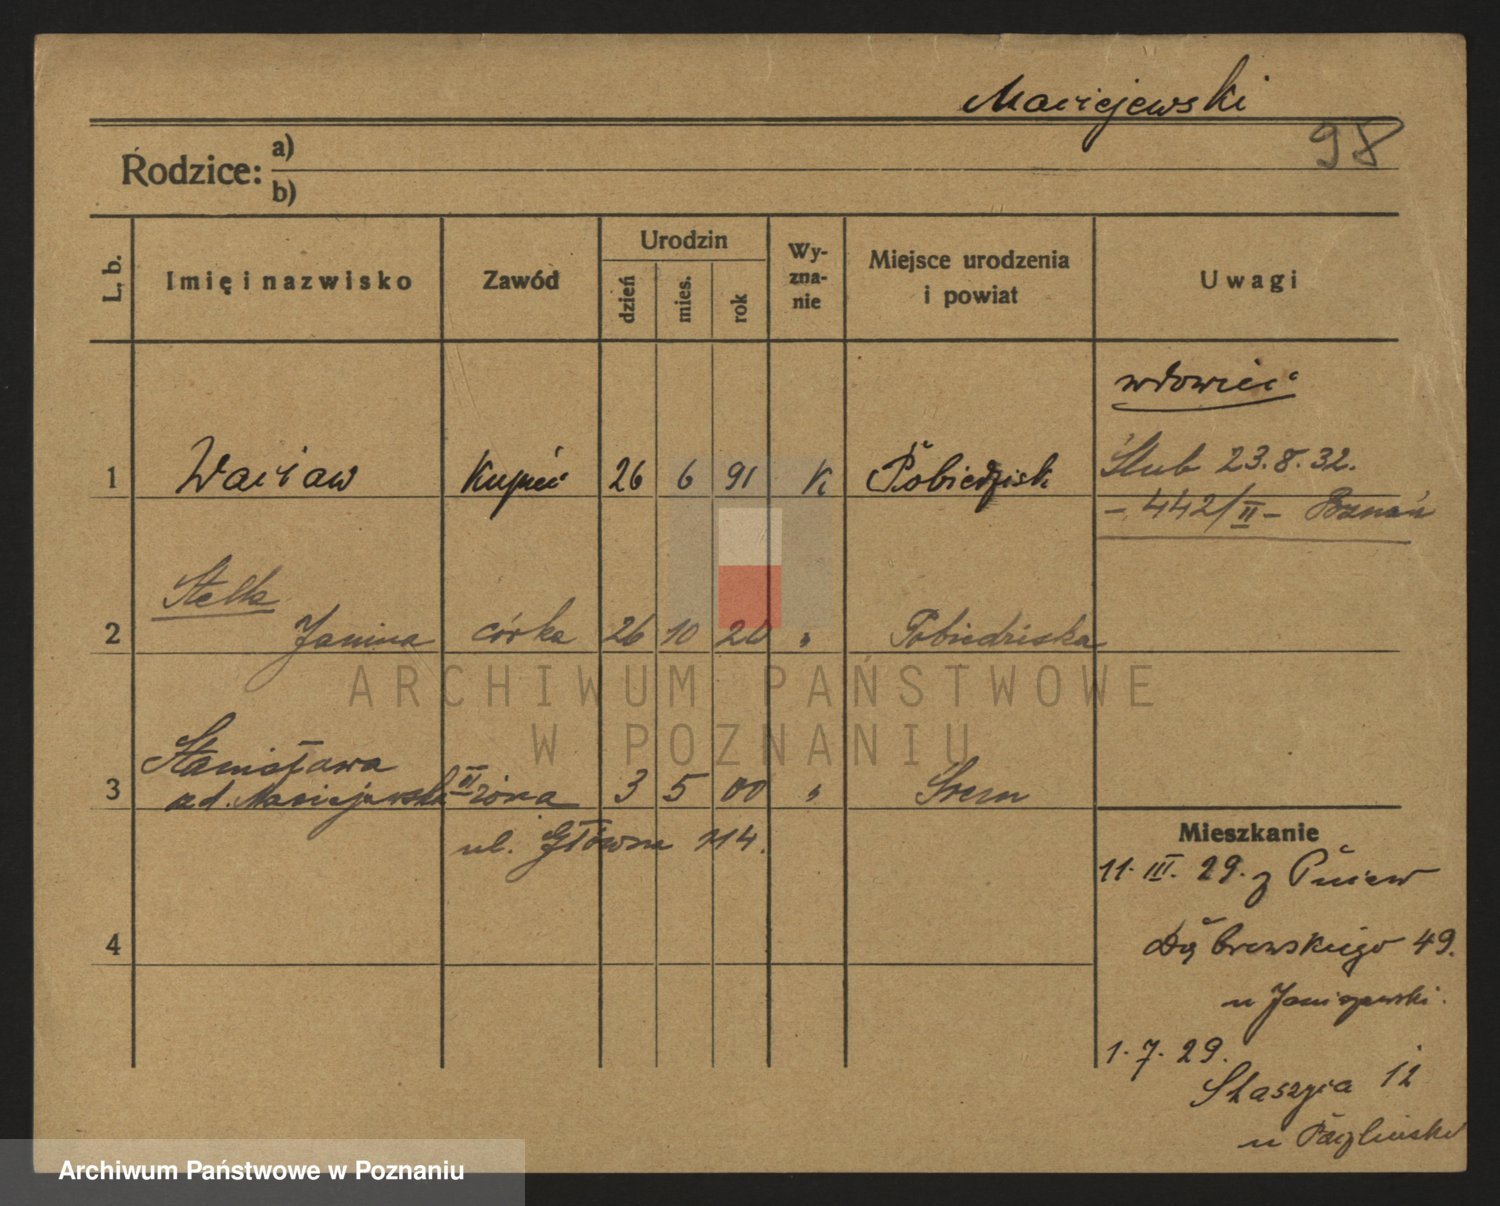 Maciejewski
98
Rodzice: a)
b)
L. b.
Imię i nazwisko
Zawód
Urodzin
dzień
mies.
rok
Wy-
zna-
nie
Miejsce urodzenia
i powiat
Uwagi
wdowiec
1 Wacław Kupiec 26 6 91 K Pobiedzisk
Ślub 23.8.32.
- 442/II - Poznań
Stella
2 Janina córka 26 10 20 " Pobiedziska
Stanisława
3 Maciejewska II żona 3 5 00 " Śrem
ul. Główna 114.
4
Mieszkanie
11. III. 29. z Pniew
Dąbrowskiego 49.
u Janiszewski.
1. 7. 29.
Staszyca 12
u
ARCHIWUM PAŃSTWOWE
W POZNANIU
Archiwum Państwowe w Poznaniu